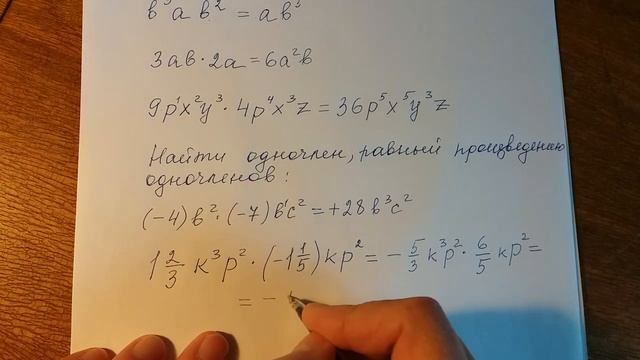 b³ab² = ab³
3ab · 2a = 6a²b
9p¹x²y³ · 4p⁴x³z = 36p⁵x⁵y³z
Найти одночлен, равный произведению
одночленов:
(-4)b² · (-7)b¹c² = +28b³c²
1 2/3 k³p² · (-1 1/5)kp² = - 5/3 k³p² · 6/5 kp² =
= -